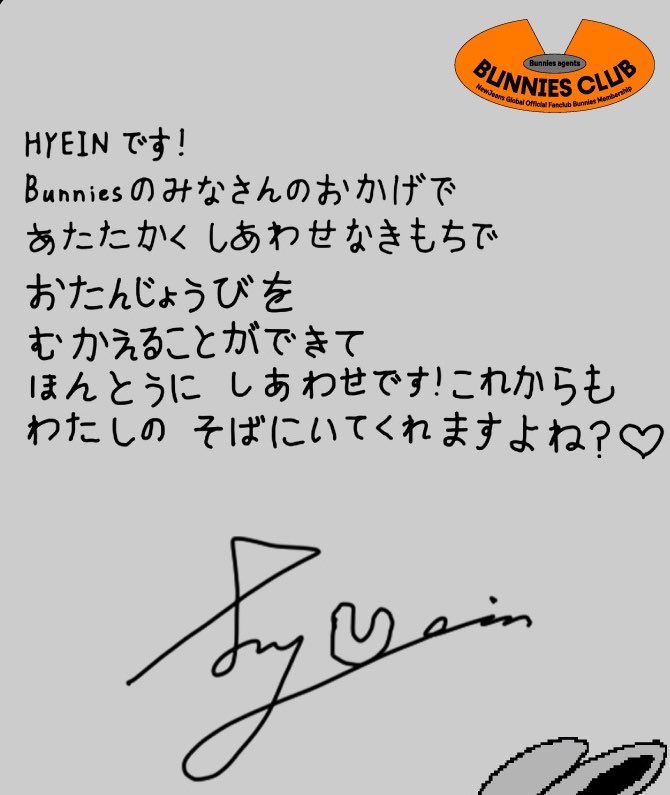 Bunnies agents
BUNNIES CLUB
NewJeans Global Official Fanclub Bunnies Membership
HYEINです!
Bunniesのみなさんのおかげで
あたたかく しあわせなきもちで
おたんじょうびを
むかえることができて
ほんとうに しあわせです!これからも
わたしの そばにいてくれますよね?♡
Hyein